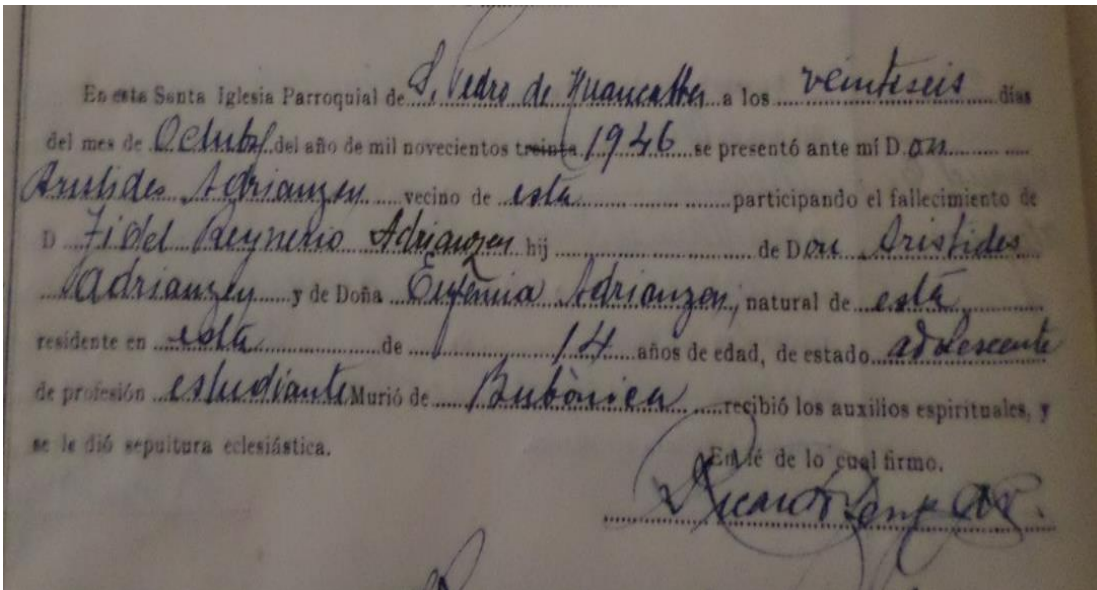 En esta Santa Iglesia Parroquial de S. Pedro de Huancabba a los veinteseis días
del mes de Octubre del año de mil novecientos treinta 1946 se presentó ante mí D.on
Aristides Adrianzen vecino de esta participando el fallecimiento de
D Fidel Reynerio Adrianzen hij de Don Aristides
Adrianzen y de Doña Eufemia Adrianzen, natural de esta
residente en esta de 14 años de edad, de estado adolescente
de profesión estudiante Murió de Bubònica recibió los auxilios espirituales, y
se le dió sepultura eclesiástica.
En fé de lo cual firmo.
Ricardo